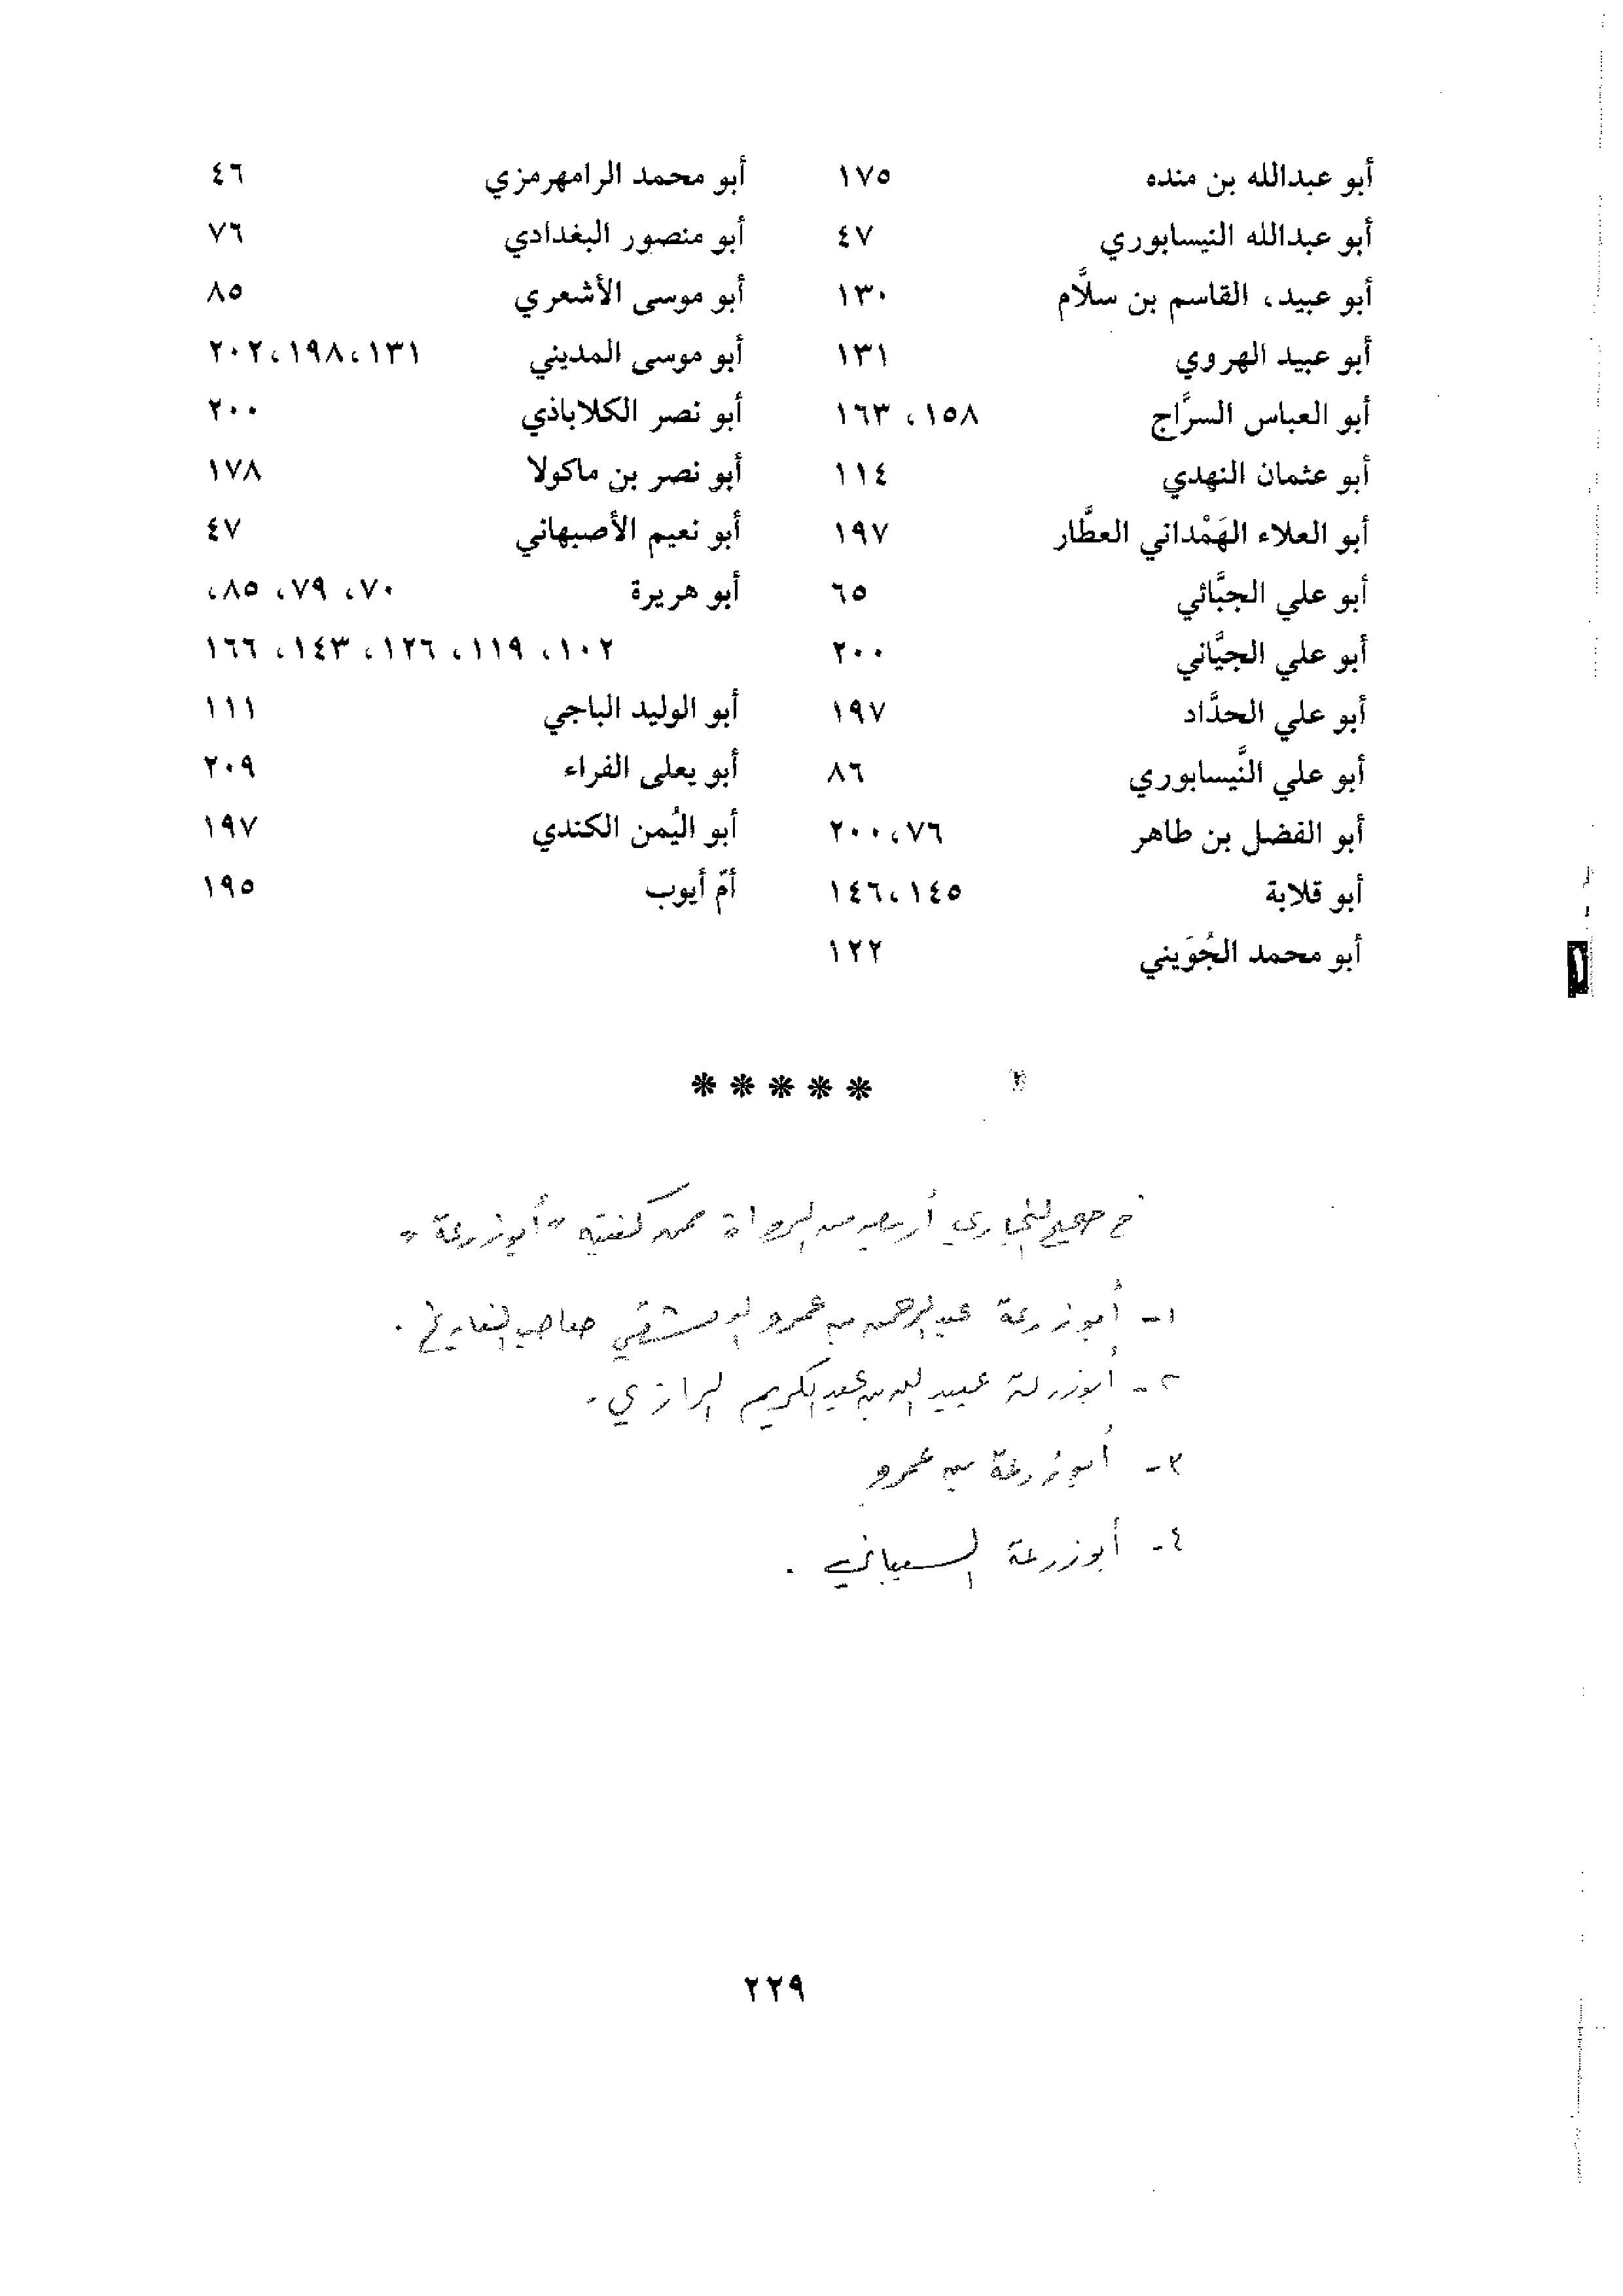 أبو عبدالله بن منده ١٧٥
أبو عبدالله النيسابوري ٤٧
أبو عبيد، القاسم بن سلَّام ١٣٠
أبو عبيد الهروي ١٣١
أبو العباس السرَّاج ١٥٨، ١٦٣
أبو عثمان النهدي ١١٤
أبو العلاء الهَمْداني العطَّار ١٩٧
أبو علي الجبَّائي ٦٥
أبو علي الجيَّاني ٢٠٠
أبو علي الحدَّاد ١٩٧
أبو علي النَّيسابوري ٨٦
أبو الفضل بن طاهر ٧٦، ٢٠٠
أبو قلابة ١٤٥، ١٤٦
أبو محمد الجُوَيني ١٢٢
أبو محمد الرامهرمزي ٤٦
أبو منصور البغدادي ٧٦
أبو موسى الأشعري ٨٥
أبو موسى المديني ١٣١، ١٩٨، ٢٠٢
أبو نصر الكلاباذي ٢٠٠
أبو نصر بن ماكولا ١٧٨
أبو نعيم الأصبهاني ٤٧
أبو هريرة ٧٠، ٧٩، ٨٥،
١٠٢، ١١٩، ١٢٦، ١٤٣، ١٦٦
أبو الوليد الباجي ١١١
أبو يعلى الفراء ٢٠٩
أبو اليُمن الكندي ١٩٧
أمّ أيوب ١٩٥
*****
في صحيح البخاري أربعة من الرواة ممن كنيته "أبو زرعة"
١- أبو زرعة عبد الرحمن بن عمرو الدمشقي صاحب التاريخ.
٢- أبو زرعة عبيد الله بن عبد الكريم الرازي.
٣- أبو زرعة بن عمرو
٤- أبو زرعة السيباني.
٢٢٩